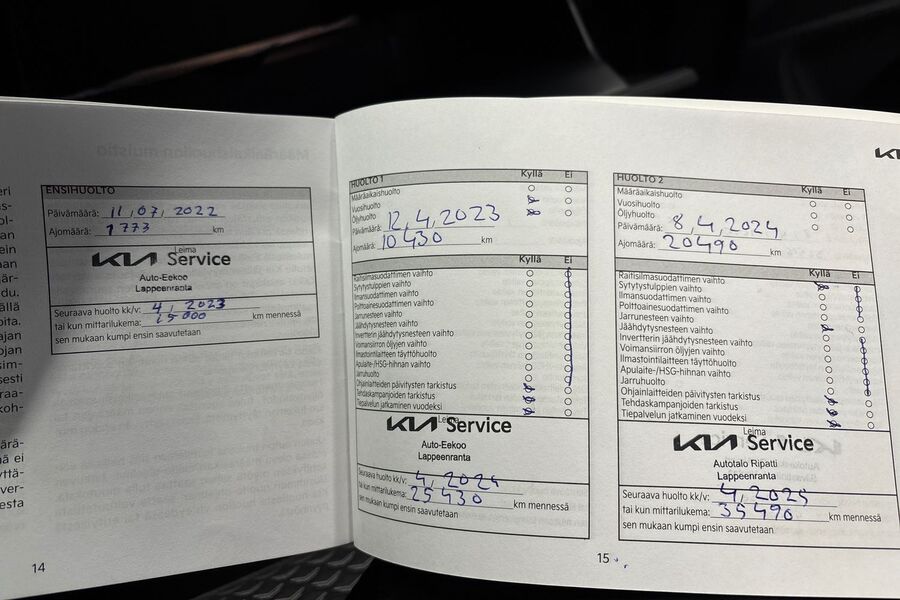 eri
us-
ol-
an
ein
an
jär-
du.
ällä
oita.
ajan
ojan
sim-
sesti
raa-
koh-
ärä-
ä ei
yttä-
ver-
esta
ENSIHUOLTO
Päivämäärä: 11,07, 2022
Ajomäärä: 1773 km
Leima
KIA Service
Auto-Eekoo
Lappeenranta
Seuraava huolto kk/v: 4, 2023
tai kun mittarilukema: 15000 km mennessä
sen mukaan kumpi ensin saavutetaan
14
HUOLTO 1 Kyllä Ei
Määräaikaishuolto
Vuosihuolto
Öljyhuolto
Päivämäärä: 12,4,2023
Ajomäärä: 10430 km
Kyllä Ei
Raitisilmasuodattimen vaihto
Sytytystulppien vaihto
Ilmansuodattimen vaihto
Polttoainesuodattimen vaihto
Jarrunesteen vaihto
Jäähdytysnesteen vaihto
Invertterin jäähdytysnesteen vaihto
Voimansiirron öljyjen vaihto
Ilmastointilaitteen täyttöhuolto
Apulaite-/HSG-hihnan vaihto
Jarruhuolto
Ohjainlaitteiden päivitysten tarkistus
Tehdaskampanjoiden tarkistus
Tiepalvelun jatkaminen vuodeksi
Leima
KIA Service
Auto-Eekoo
Lappeenranta
Seuraava huolto kk/v: 4, 2024
tai kun mittarilukema: 25430 km mennessä
sen mukaan kumpi ensin saavutetaan
KIA
HUOLTO 2 Kyllä Ei
Määräaikaishuolto
Vuosihuolto
Öljyhuolto
Päivämäärä: 8,4,2024
Ajomäärä: 20490 km
Kyllä Ei
Raitisilmasuodattimen vaihto
Sytytystulppien vaihto
Ilmansuodattimen vaihto
Polttoainesuodattimen vaihto
Jarrunesteen vaihto
Jäähdytysnesteen vaihto
Invertterin jäähdytysnesteen vaihto
Voimansiirron öljyjen vaihto
Ilmastointilaitteen täyttöhuolto
Apulaite-/HSG-hihnan vaihto
Jarruhuolto
Ohjainlaitteiden päivitysten tarkistus
Tehdaskampanjoiden tarkistus
Tiepalvelun jatkaminen vuodeksi
Leima
KIA Service
Autotalo Ripatti
Lappeenranta
Seuraava huolto kk/v: 4, 2025
tai kun mittarilukema: 35490 km mennessä
sen mukaan kumpi ensin saavutetaan
15